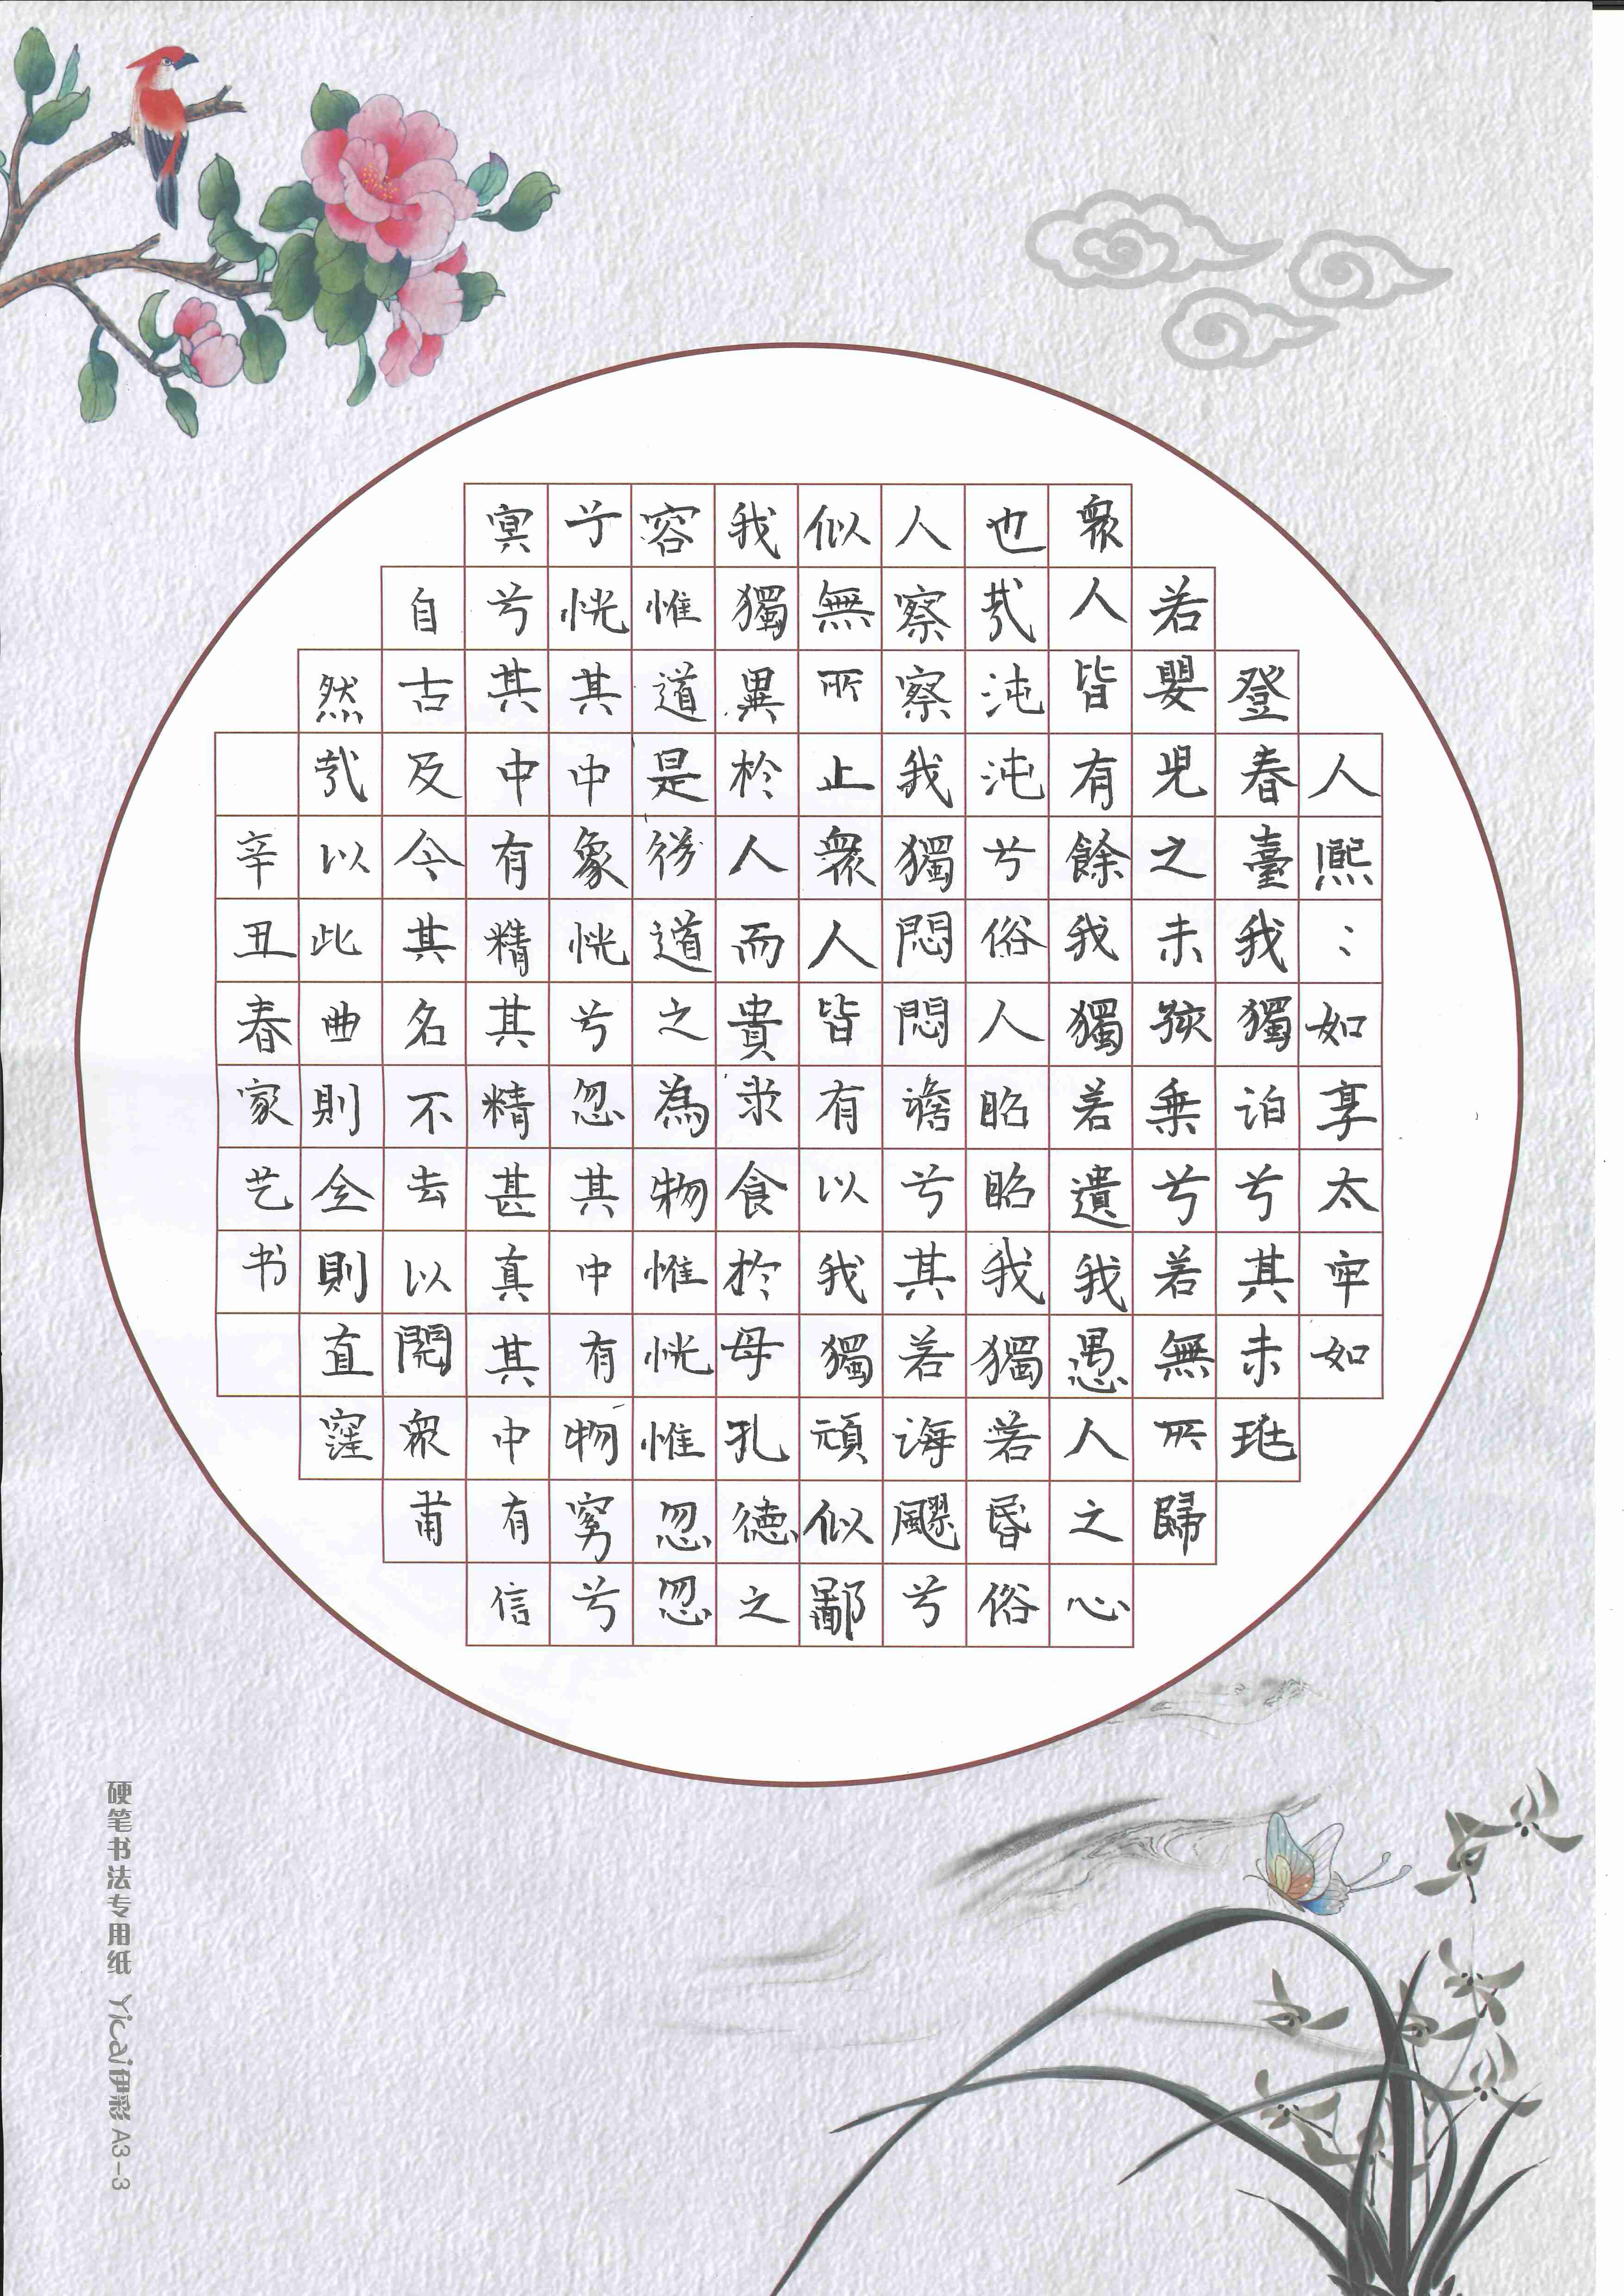 人熙:如享太牢如
登春臺我獨泊兮其未
若嬰児之未孩乗兮若無所歸
衆人皆有餘我獨若遺我愚人之心
也哉沌沌兮俗人昭昭我獨若昏俗
人察察我獨悶悶澹兮其若海飂兮
似無所止衆人皆有以我獨頑似鄙
我獨異於人而貴求食於母孔德之
容惟道是從道之為物惟恍惟忽忽
兮恍其中象恍兮忽其中有物窈兮
冥兮其中有精其精甚真其中有信
自古及今其名不去以閱衆甫
然哉以此曲則全則直窪
辛丑春家艺书
硬笔书法专用纸 Yicai伊彩 A3-3